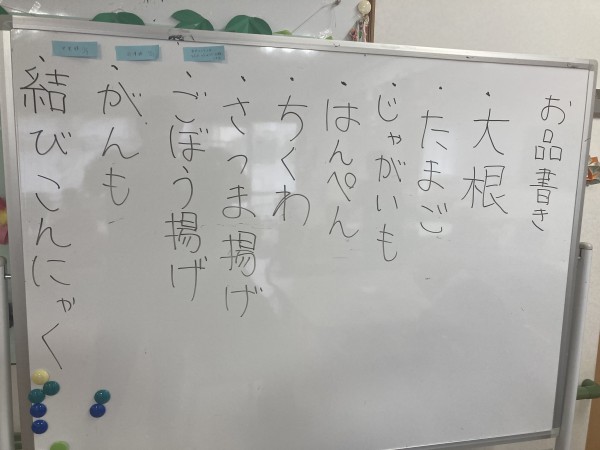 お品書き
・大根
・たまご
・じゃがいも
・はんぺん
・ちくわ
・さつま揚げ
・ごぼう揚げ
・がんも
・結びこんにゃく